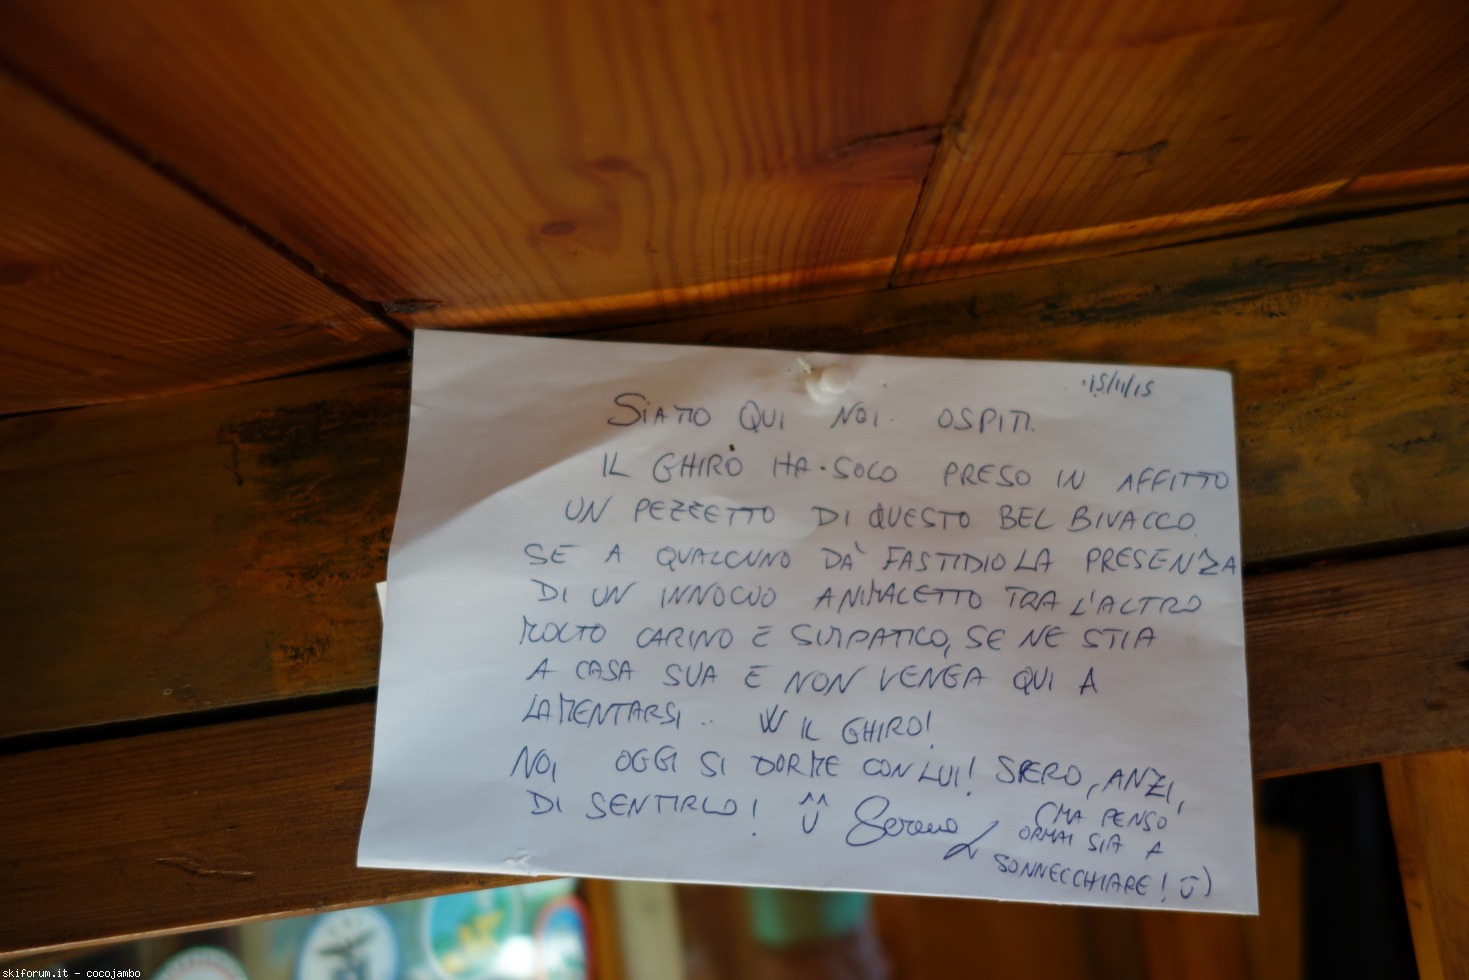 15/11/15
SIAMO QUI NOI OSPITI.
IL GHIRO HA SOLO PRESO IN AFFITTO
UN PEZZETTO DI QUESTO BEL BIVACCO.
SE A QUALCUNO DÀ FASTIDIO LA PRESENZA
DI UN INNOCUO ANIMALETTO TRA L'ALTRO
MOLTO CARINO E SIMPATICO, SE NE STIA
A CASA SUA E NON VENGA QUI A
LAMENTARSI.. W IL GHIRO!
NOI OGGI SI DORME CON LUI! SPERO, ANZI,
DI SENTIRLO!
(MA PENSO
ORMAI SIA A
SONNECCHIARE!
skiforum.it - cocojambo